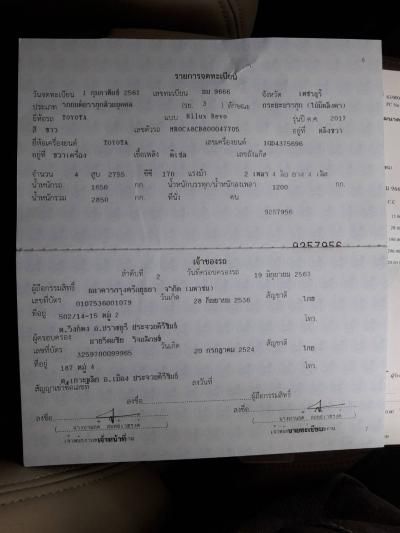 6
รายการจดทะเบียน
วันจดทะเบียน 1 กุมภาพันธ์ 2561 เลขทะเบียน 9666 จังหวัด เพชรบุรี
ประเภท รถยนต์บรรทุกส่วนบุคคล (รย. 3 ) ลักษณะ กระบะบรรทุก (ไม่มีหลังคา)
ยี่ห้อรถ TOYOTA แบบ Hilux Revo รุ่นปี ค.ศ. 2017
สี ขาว เลขตัวรถ MR0CA8CB800047705 อยู่ที่
ยี่ห้อเครื่องยนต์ TOYOTA เลขเครื่องยนต์ 1GD4375696
อยู่ที่ ขวาเครื่อง เชื้อเพลิง ดีเซล เลขถังแก๊ส
จำนวน 4 สูบ 2755 ซีซี 170 แรงม้า 2 เพลา 4 ล้อ ยาง 4 เส้น
น้ำหนักรถ 1650 กก. น้ำหนักบรรทุก/น้ำหนักลงเพลา 1200 กก.
น้ำหนักรวม 2850 กก. ที่นั่ง คน
9257956
9257956
เจ้าของรถ
ลำดับที่ 2 วันที่ครอบครองรถ 19 มิถุนายน 2563
ผู้ถือกรรมสิทธิ์ ธนาคารกรุงศรีอยุธยา จำกัด (มหาชน)
เลขที่บัตร 0107536001079 วันเกิด 28 กันยายน 2536 สัญชาติ ไทย
ที่อยู่ 502/14-15 หมู่ 2 โทร.
ต.วังก์พง อ.ปราณบุรี ประจวบคีรีขันธ์
ผู้ครอบครอง
เลขที่บัตร 3259700099965 วันเกิด 20 กรกฎาคม 2524 สัญชาติ ไทย
ที่อยู่ 187 หมู่ 4 โทร.
ต.เกาะหลัก อ.เมือง ประจวบคีรีขันธ์
สัญญาเช่าซื้อเลขที่ ลงวันที่
ลงชื่อ ผู้ถือกรรมสิทธิ์
ลงชื่อ ลงชื่อ
เจ้าหน้าที่ นายทะเบียน
7